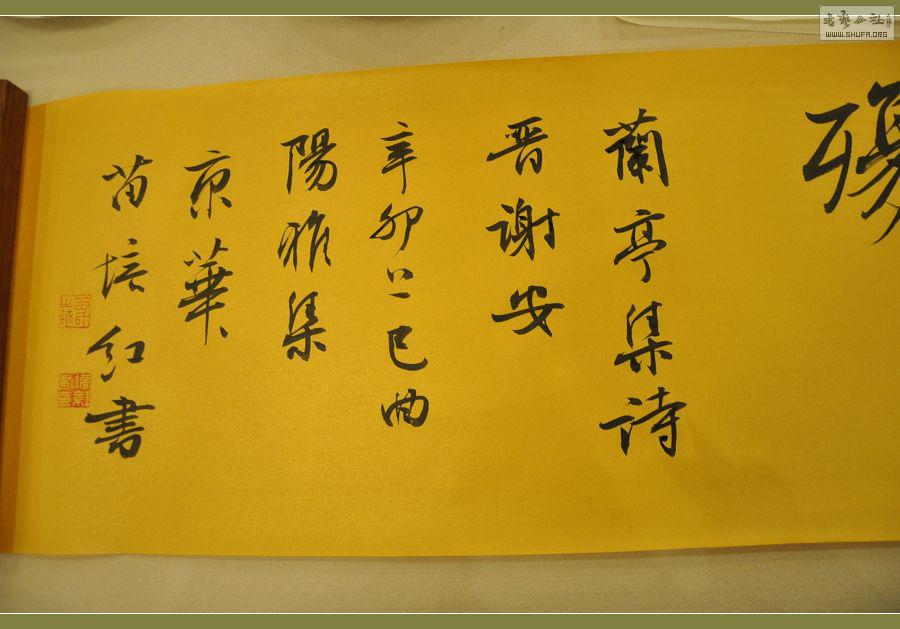 殤
蘭亭集詩
晋謝安
辛卯上巳曲
陽雅集
京華
苗培红書
書藝公社
WWW.SHUFA.ORG